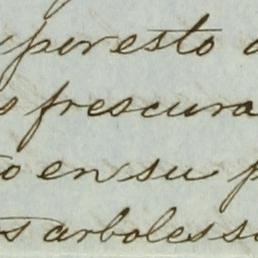 por esto
s frescura
o en su p
s arboles s